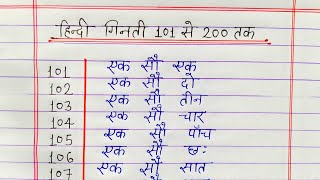 हिन्दी गिनती 101 से 200 तक
101 एक सौ एक
102 एक सौ दो
103 एक सौ तीन
104 एक सौ चार
105 एक सौ पाँच
106 एक सौ छः
107 एक सौ सात